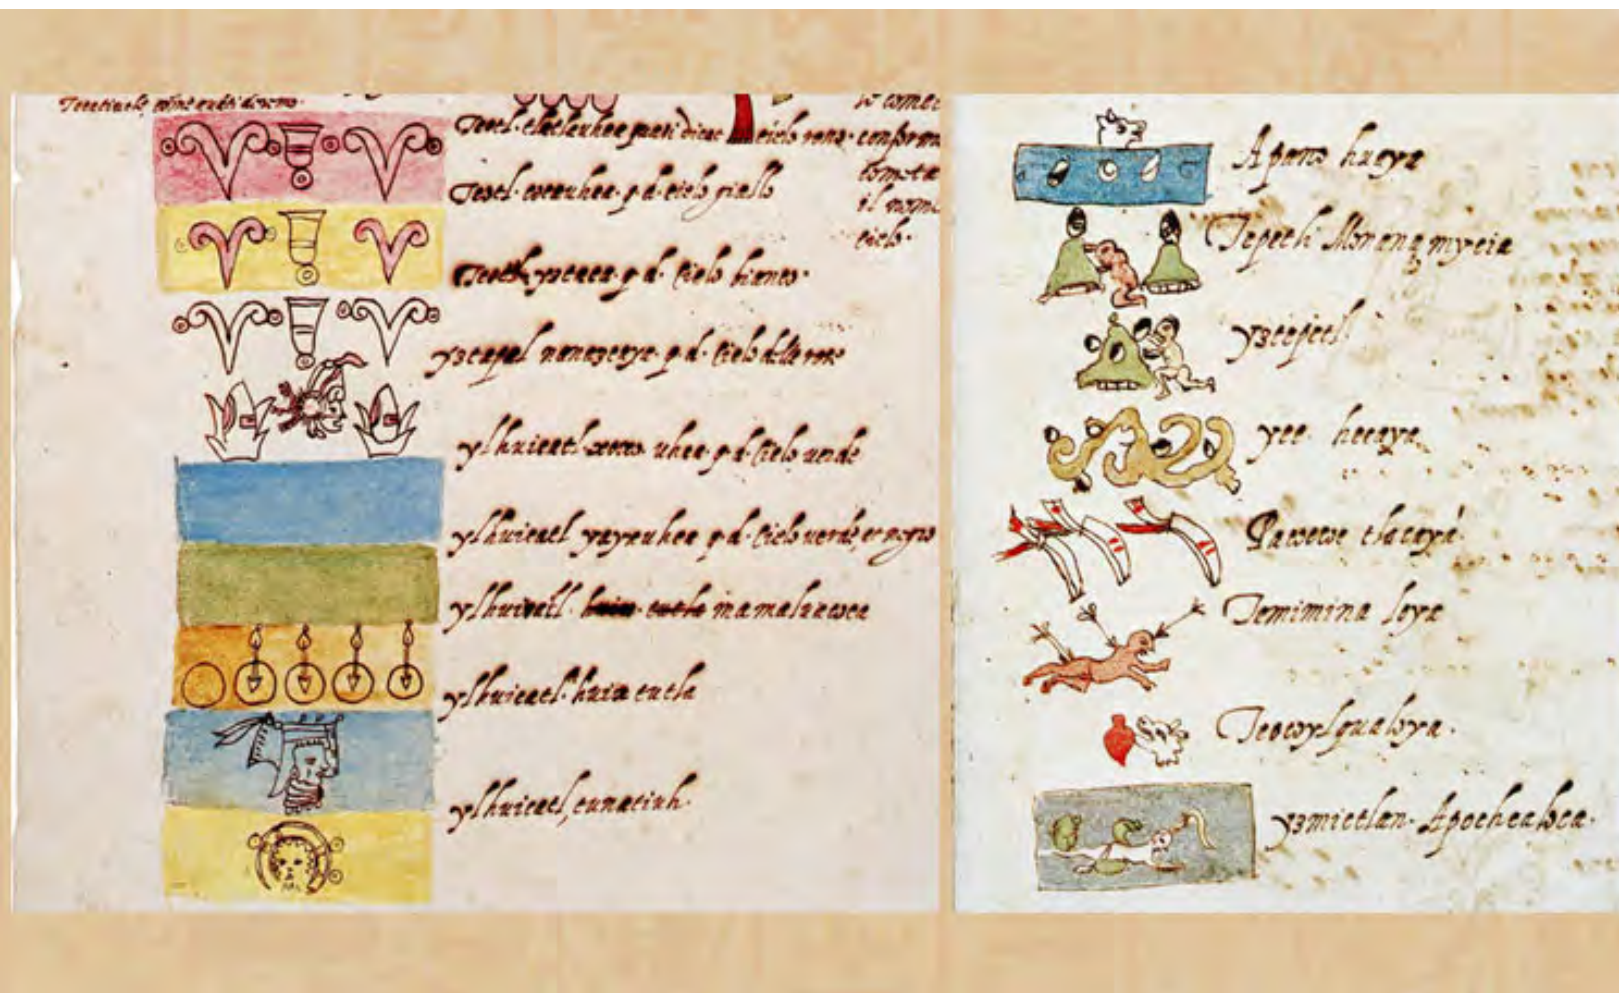 Teotl. tlatlauhca quasi dicat cielo roso.
Teotl. cocauhca. q. d. cielo giallo
Teotl. yztaca. q. d. Cielo bianco.
yztapal nanazcaya. q. d. Cielo delle rose
ylhuicatl xoxo uhca. q. d. Cielo uerde
ylhuicatl yayauhca q. d. Cielo uerde, et negro
ylhuicatl. mamaluacoca
ylhuicatl. huixtutla
ylhuicatl, tunatiuh.
cielo.
Apano huaya
Tepetli Monanamycia
yztepetl.
yee hecaya
Pacoecoe tlacaya.
Temimina loya
Teocoylqualoya.
yzmictlan. Apochcaloca.